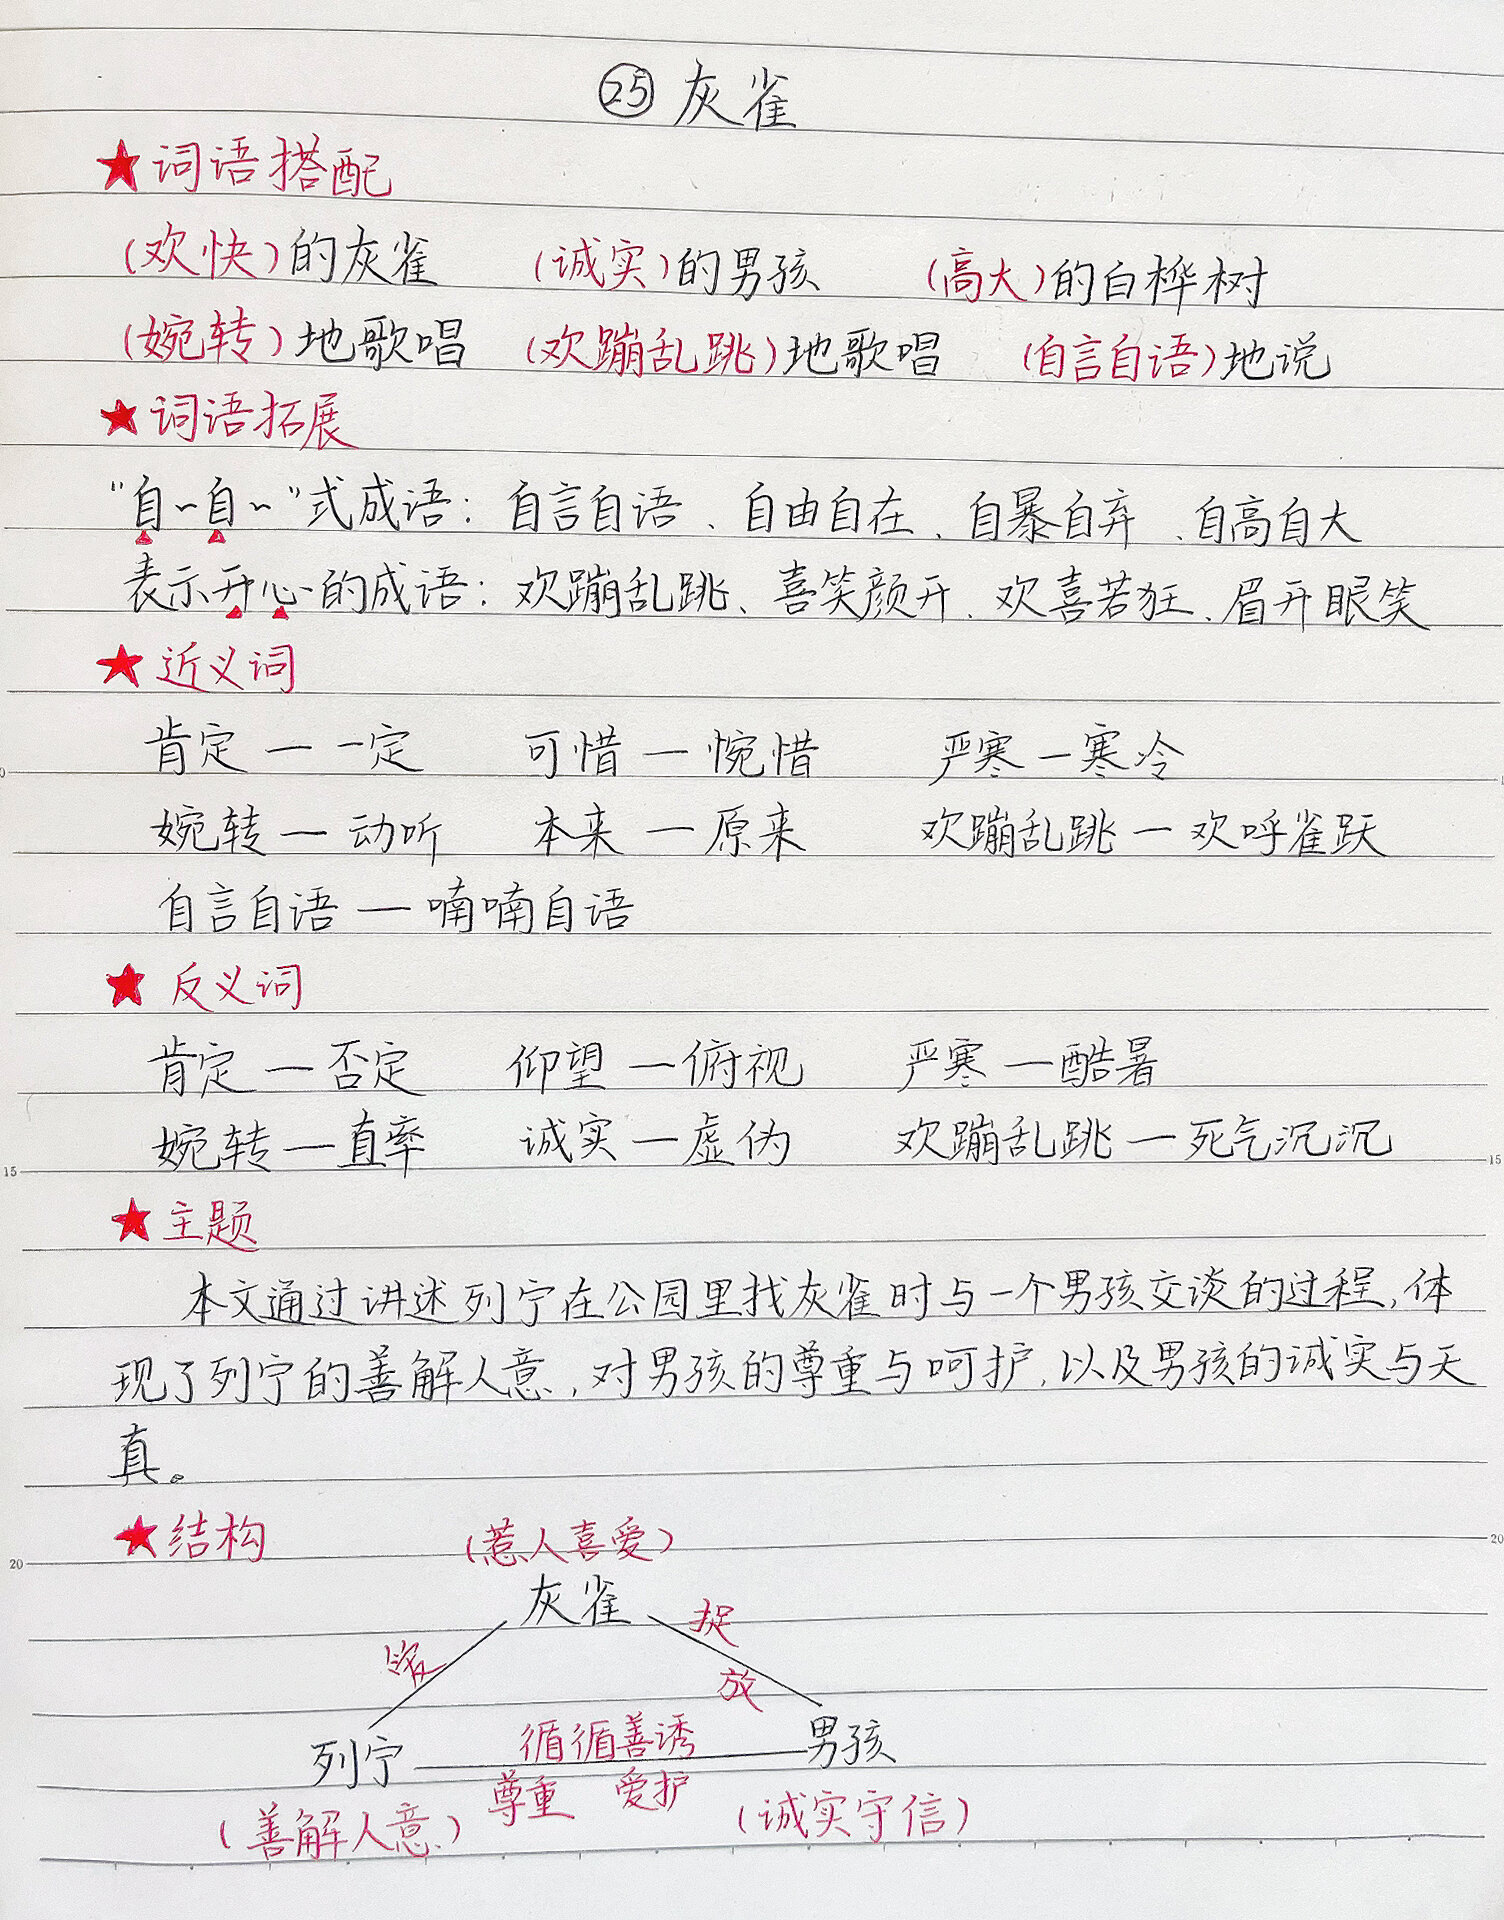 ㉕ 灰雀
★词语搭配
(欢快)的灰雀 (诚实)的男孩 (高大)的白桦树
(婉转)地歌唱 (欢蹦乱跳)地歌唱 (自言自语)地说
★词语拓展
“自~自~”式成语：自言自语、自由自在、自暴自弃、自高自大
表示开心的成语：欢蹦乱跳、喜笑颜开、欢喜若狂、眉开眼笑
★近义词
肯定—一定 可惜—惋惜 严寒—寒冷
婉转—动听 本来—原来 欢蹦乱跳—欢呼雀跃
自言自语—喃喃自语
★反义词
肯定—否定 仰望—俯视 严寒—酷暑
婉转—直率 诚实—虚伪 欢蹦乱跳—死气沉沉
★主题
本文通过讲述列宁在公园里找灰雀时与一个男孩交谈的过程,体
现了列宁的善解人意,对男孩的尊重与呵护,以及男孩的诚实与天
真。
★结构
(惹人喜爱)
灰雀
爱 捉
放
列宁 循循善诱 男孩
尊重 爱护
(善解人意) (诚实守信)
15
15
20
20